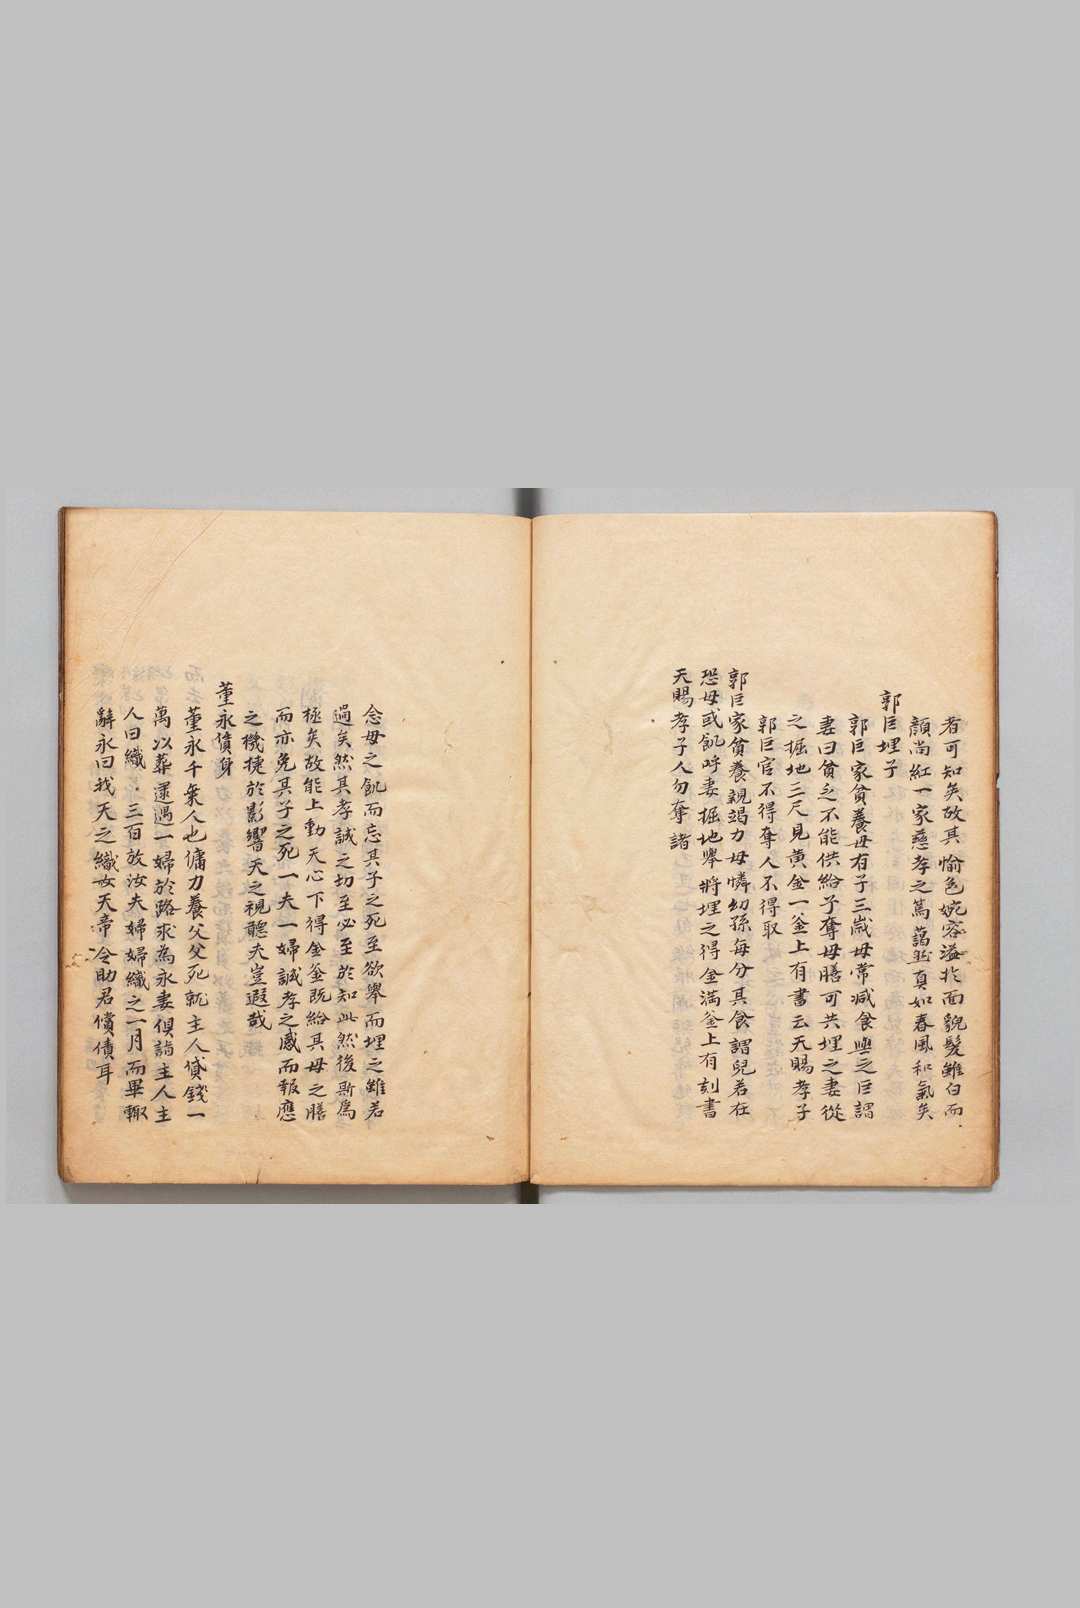 者可知矣故其愉色婉容溢於面貌髮雖白而
顏尚紅一家慈孝之篤藹然真如春風和氣矣
郭巨埋子
郭巨家貧養母有子三歲母常减食與之巨謂
妻曰貧乏不能供給子奪母膳可共埋之妻從
之掘地三尺見黃金一釜上有書云天賜孝子
郭巨官不得奪人不得取
郭巨家貧養親竭力母憐幼孫每分其食謂兒若在
恐母或飢呼妻掘地舉將埋之得金滿釜上有刻書
天賜孝子人勿奪諸
念母之飢而忘其子之死至欲舉而埋之雖若
過矣然其孝誠之切至必至於如此然後斯爲
極矣故能上動天心下得金釜既給其母之膳
而亦免其子之死一夫一婦誠孝之感而報應
之機捷於影響天之視聽夫豈遐哉
董永賃身
董永千乗人也傭力養父父死就主人貸錢一
萬以葬遂遇一婦於路求為永妻俱詣主人主
人曰織三百放汝夫婦婦織之一月而畢輙
辭永曰我天之織女天帝令助君償債耳